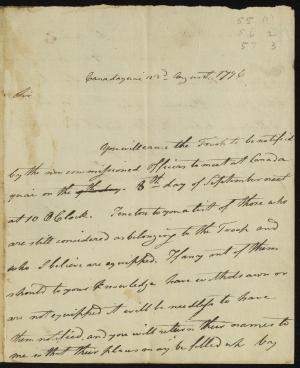 55 (1)
56 2
57 3
Canadaquai 22d August 1796
Sir
You will cause the Troop to be notified
by the non commissioned officers to meet at Canada
quai on the 8th day of September next
at 10 O Clock. I enclos to you a list of those who
are still considered as belonging to the Troop and
who I believe are equipped. If any out of them
should to your Knowledge have withdrawn or
are not equipped it will be needless to have
them notified, and you will return their names to
me so that their places may be filled up by